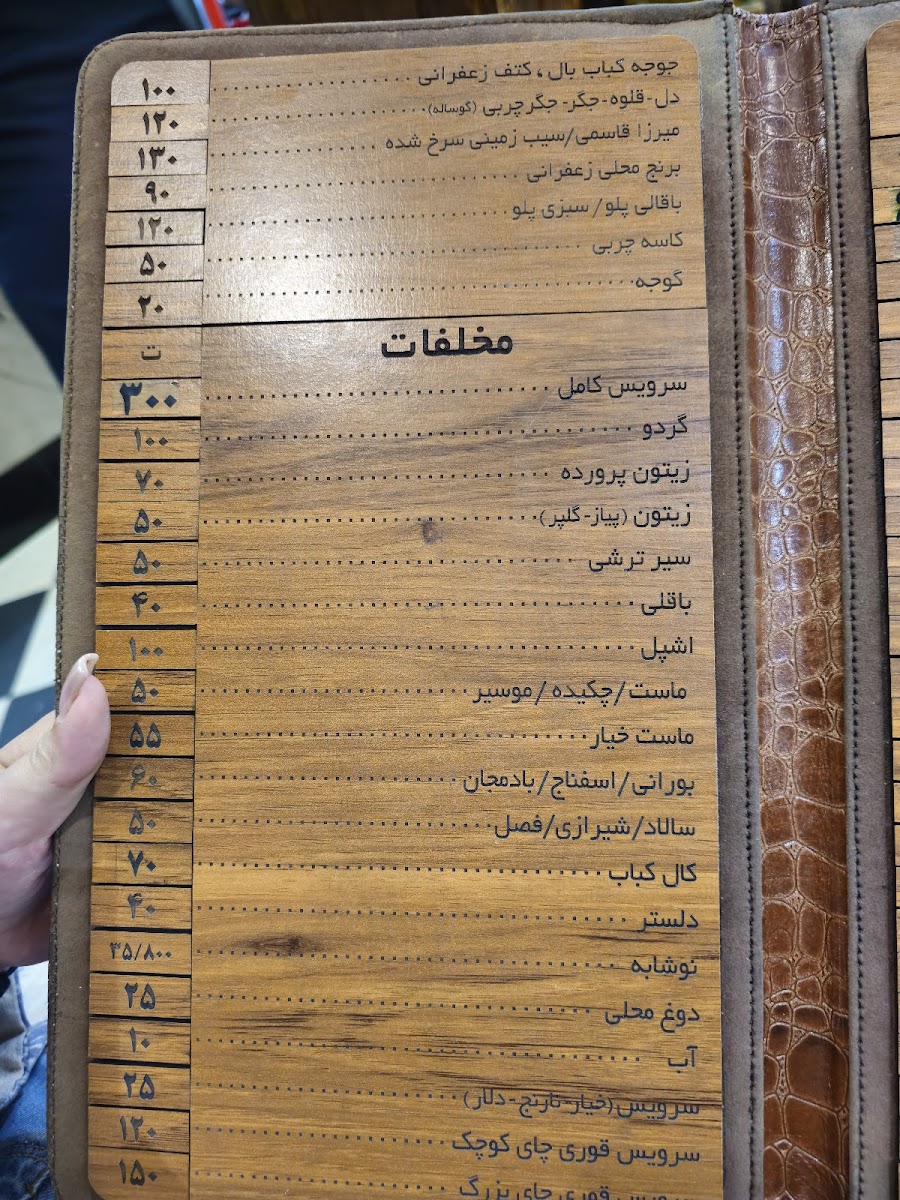 جوجه کباب بال ، کتف زعفرانی ۱۰۰
دل-قلوه-جگر-جگر چربی (گوساله) ۱۲۰
میرزا قاسمی/سیب زمینی سرخ شده ۱۳۰
برنج محلی زعفرانی ۹۰
باقالی پلو/ سبزی پلو ۱۲۰
کاسه چربی ۵۰
گوجه ۲۰
مخلفات ت
سرویس کامل ۳۰۰
گردو ۱۰۰
زیتون پرورده ۷۰
زیتون (پیاز-گلپر) ۵۰
سیر ترشی ۵۰
باقلی ۴۰
اشپل ۱۰۰
ماست/چکیده/موسیر ۵۰
ماست خیار ۵۵
بورانی/اسفناج/بادمجان ۶۰
سالاد/شیرازی/فصل ۵۰
کال کباب ۷۰
دلستر ۴۰
نوشابه ۳۵/۸۰۰
دوغ محلی ۲۵
آب ۱۰
سرویس(خیار-نارنج-دلار) ۲۵
سرویس قوری چای کوچک ۱۲۰
سرویس قوری چای بزرگ ۱۵۰